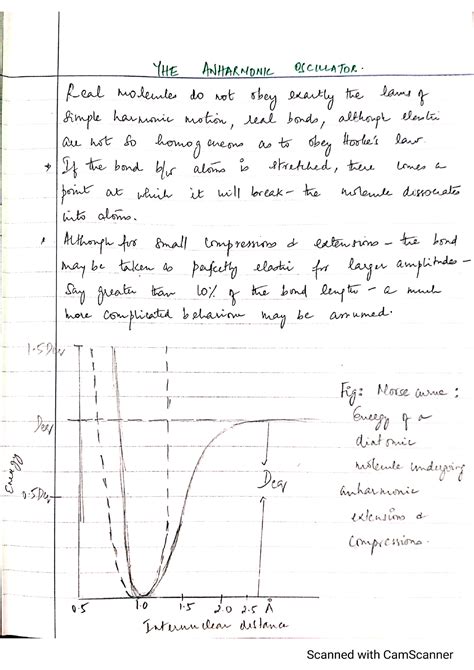 THE ANHARMONIC OSCILLATOR.
Real molecules do not obey exactly the laws of
simple harmonic motion, real bonds, although elastic
are not so homogeneous as to obey Hooke's law.
If the bond b/w atoms is stretched, there comes a
point at which it will break - the molecule dissociates
into atoms.
Although for small compressions & extensions - the bond
may be taken as perfectly elastic for larger amplitudes -
say greater than 10% of the bond length - a much
more complicated behaviour may be assumed.
1.5Deq
Deq
0.5Deq
Energy
Deq
0.5 1.0 1.5 2.0 2.5 Å
Internuclear distance
Fig: Morse curve:
Energy of a
diatomic
molecule undergoing
anharmonic
extensions &
compressions.
Scanned with CamScanner